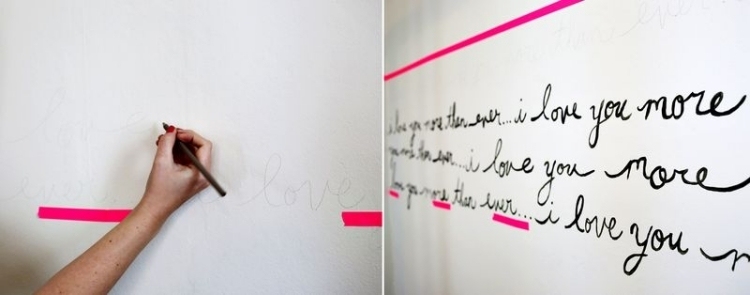 ever love
i love you more than ever...i love you more
than ever....i love you more
love you more than ever...i love you